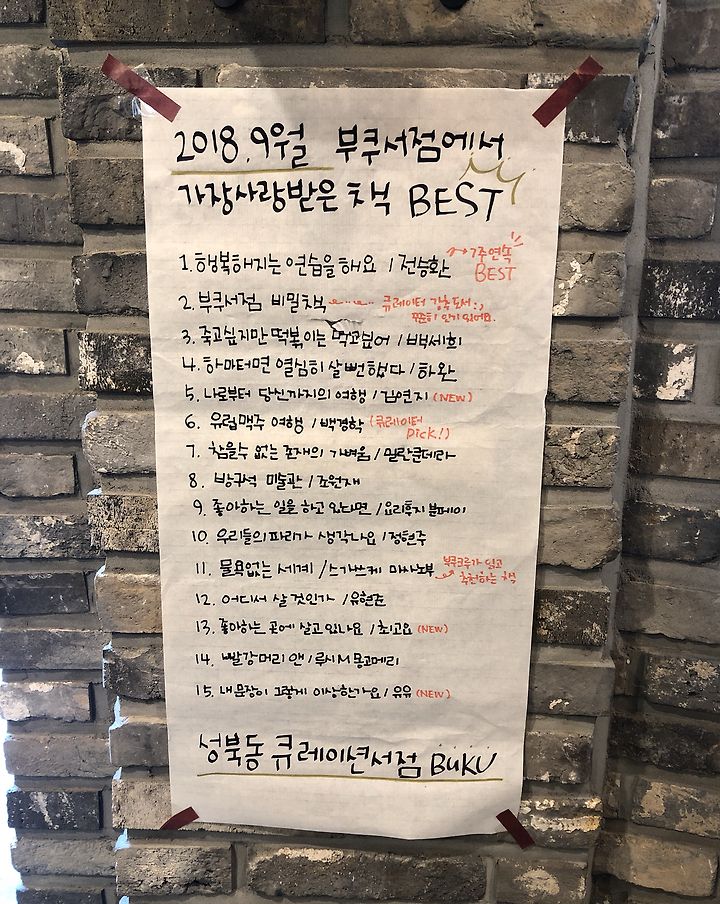 2018.9월 부쿠서점에서
가장사랑받은 책 BEST
1. 행복해지는 연습을 해요 / 전승환 7주 연속
BEST
2. 부쿠서점 비밀책 큐레이터 강추 도서:)
꾸준히 인기 있어요.
3. 죽고싶지만 떡볶이는 먹고싶어 / 백세희
4. 하마터면 열심히 살 뻔했다 / 하완
5. 나로부터 당신까지의 여행 / 김연지 (NEW)
6. 유럽맥주 여행 / 백경학 (큐레이터
Pick!)
7. 참을수 없는 존재의 가벼움 / 밀란쿤데라
8. 방구석 미술관 / 조원재
9. 좋아하는 일을 하고 있다면 / 요리후지 분페이
10. 우리들의파리가 생각나요 / 정현주
11. 물욕없는 세계 / 스가쓰케 마사노부 부쿠크루가 읽고
추천하는 책
12. 어디서 살 것인가 / 유현준
13. 좋아하는 곳에 살고 있나요 / 최고요 (NEW)
14. 빨강머리 앤 / 루시 M 몽고메리
15. 내 문장이 그렇게 이상한가요 / 유유 (NEW)
성북동 큐레이션서점 BUKU